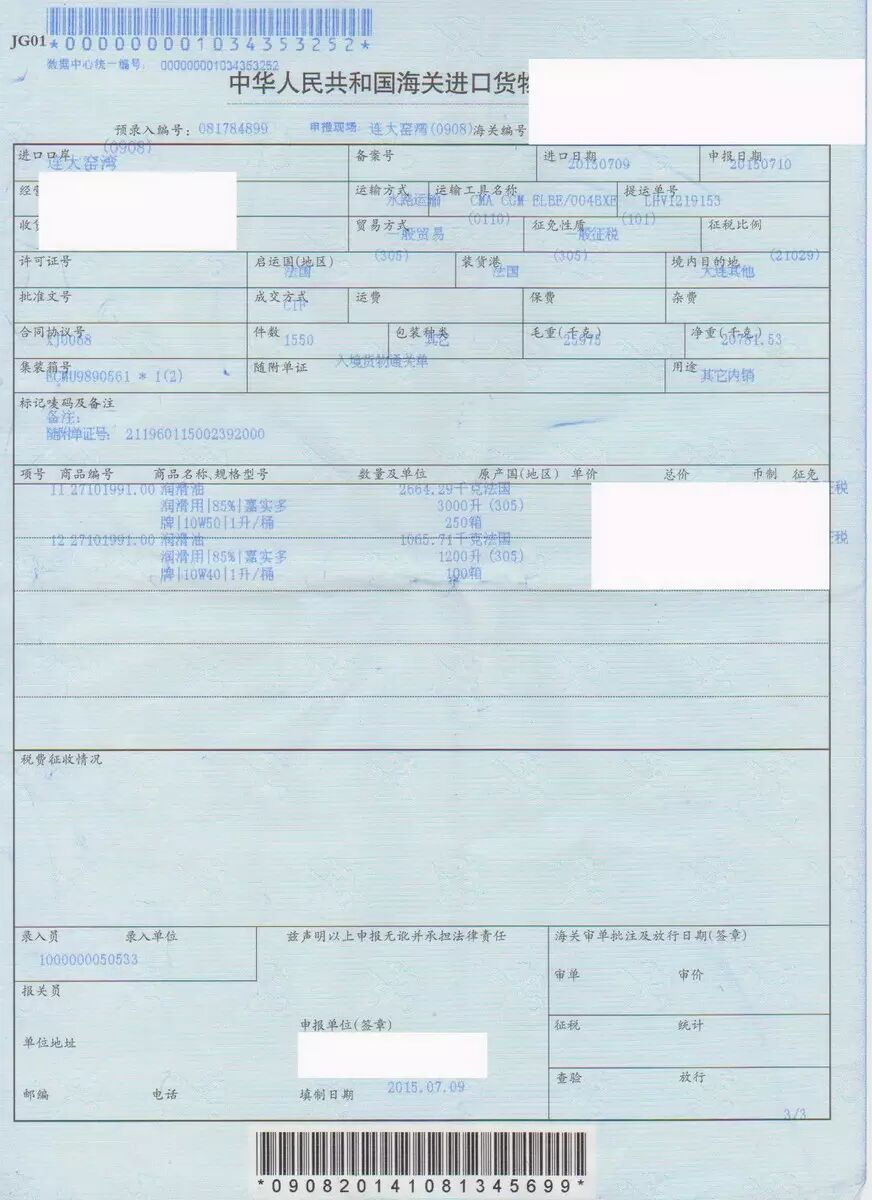 JG01
*000000001034353252*
数据中心统一编号: 000000001034353252
中华人民共和国海关进口货物
预录入编号: 081784899 申报现场: 连大窑湾(0908) 海关编号
进口口岸 (0908) 备案号 进口日期 申报日期
连大窑湾 20150709 20150710
经营 运输方式 运输工具名称 提运单号
水路运输 CMA CGM ELBE/004BXE LHV1219153
收货 贸易方式 (0110) 征免性质 (101) 征税比例
一般贸易 一般征税
许可证号 启运国(地区) (305) 装货港 (305) 境内目的地 (21029)
法国 法国 大连其他
批准文号 成交方式 运费 保费 杂费
CIF
合同协议号 件数 包装种类 毛重(千克) 净重(千克)
XJ0068 1550 其它 25975 20781.53
集装箱号 随附单证 入境货物通关单 用途
ECMU9890561 * 1(2) 其它内销
标记唛码及备注
备注:
随附单证号: 211960115002392000
项号 商品编号 商品名称、规格型号 数量及单位 原产国(地区) 单价 总价 币制 征免
11 27101991.00 润滑油 2664.29千克 法国 征税
润滑用|85%|嘉实多 3000升 (305)
牌|10W50|1升/桶 250箱
12 27101991.00 润滑油 1065.71千克 法国 征税
润滑用|85%|嘉实多 1200升 (305)
牌|10W40|1升/桶 100箱
税费征收情况
录入员 录入单位 兹声明以上申报无讹并承担法律责任 海关审单批注及放行日期(签章)
1000000050533
审单 审价
报关员
申报单位(签章) 征税 统计
单位地址
查验 放行
邮编 电话 填制日期 2015.07.09
3/3
*090820141081345699*